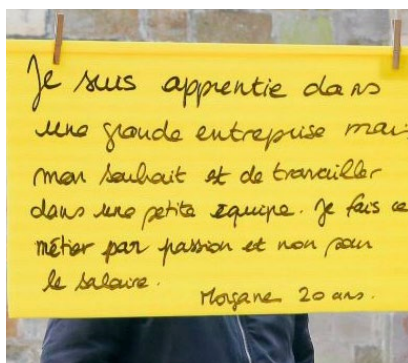 Je suis apprentie dans
une grande entreprise mais
mon souhait et de travailler
dans une petite équipe. Je fais ce
métier par passion et non pour
le salaire.
Morgane 20 ans.